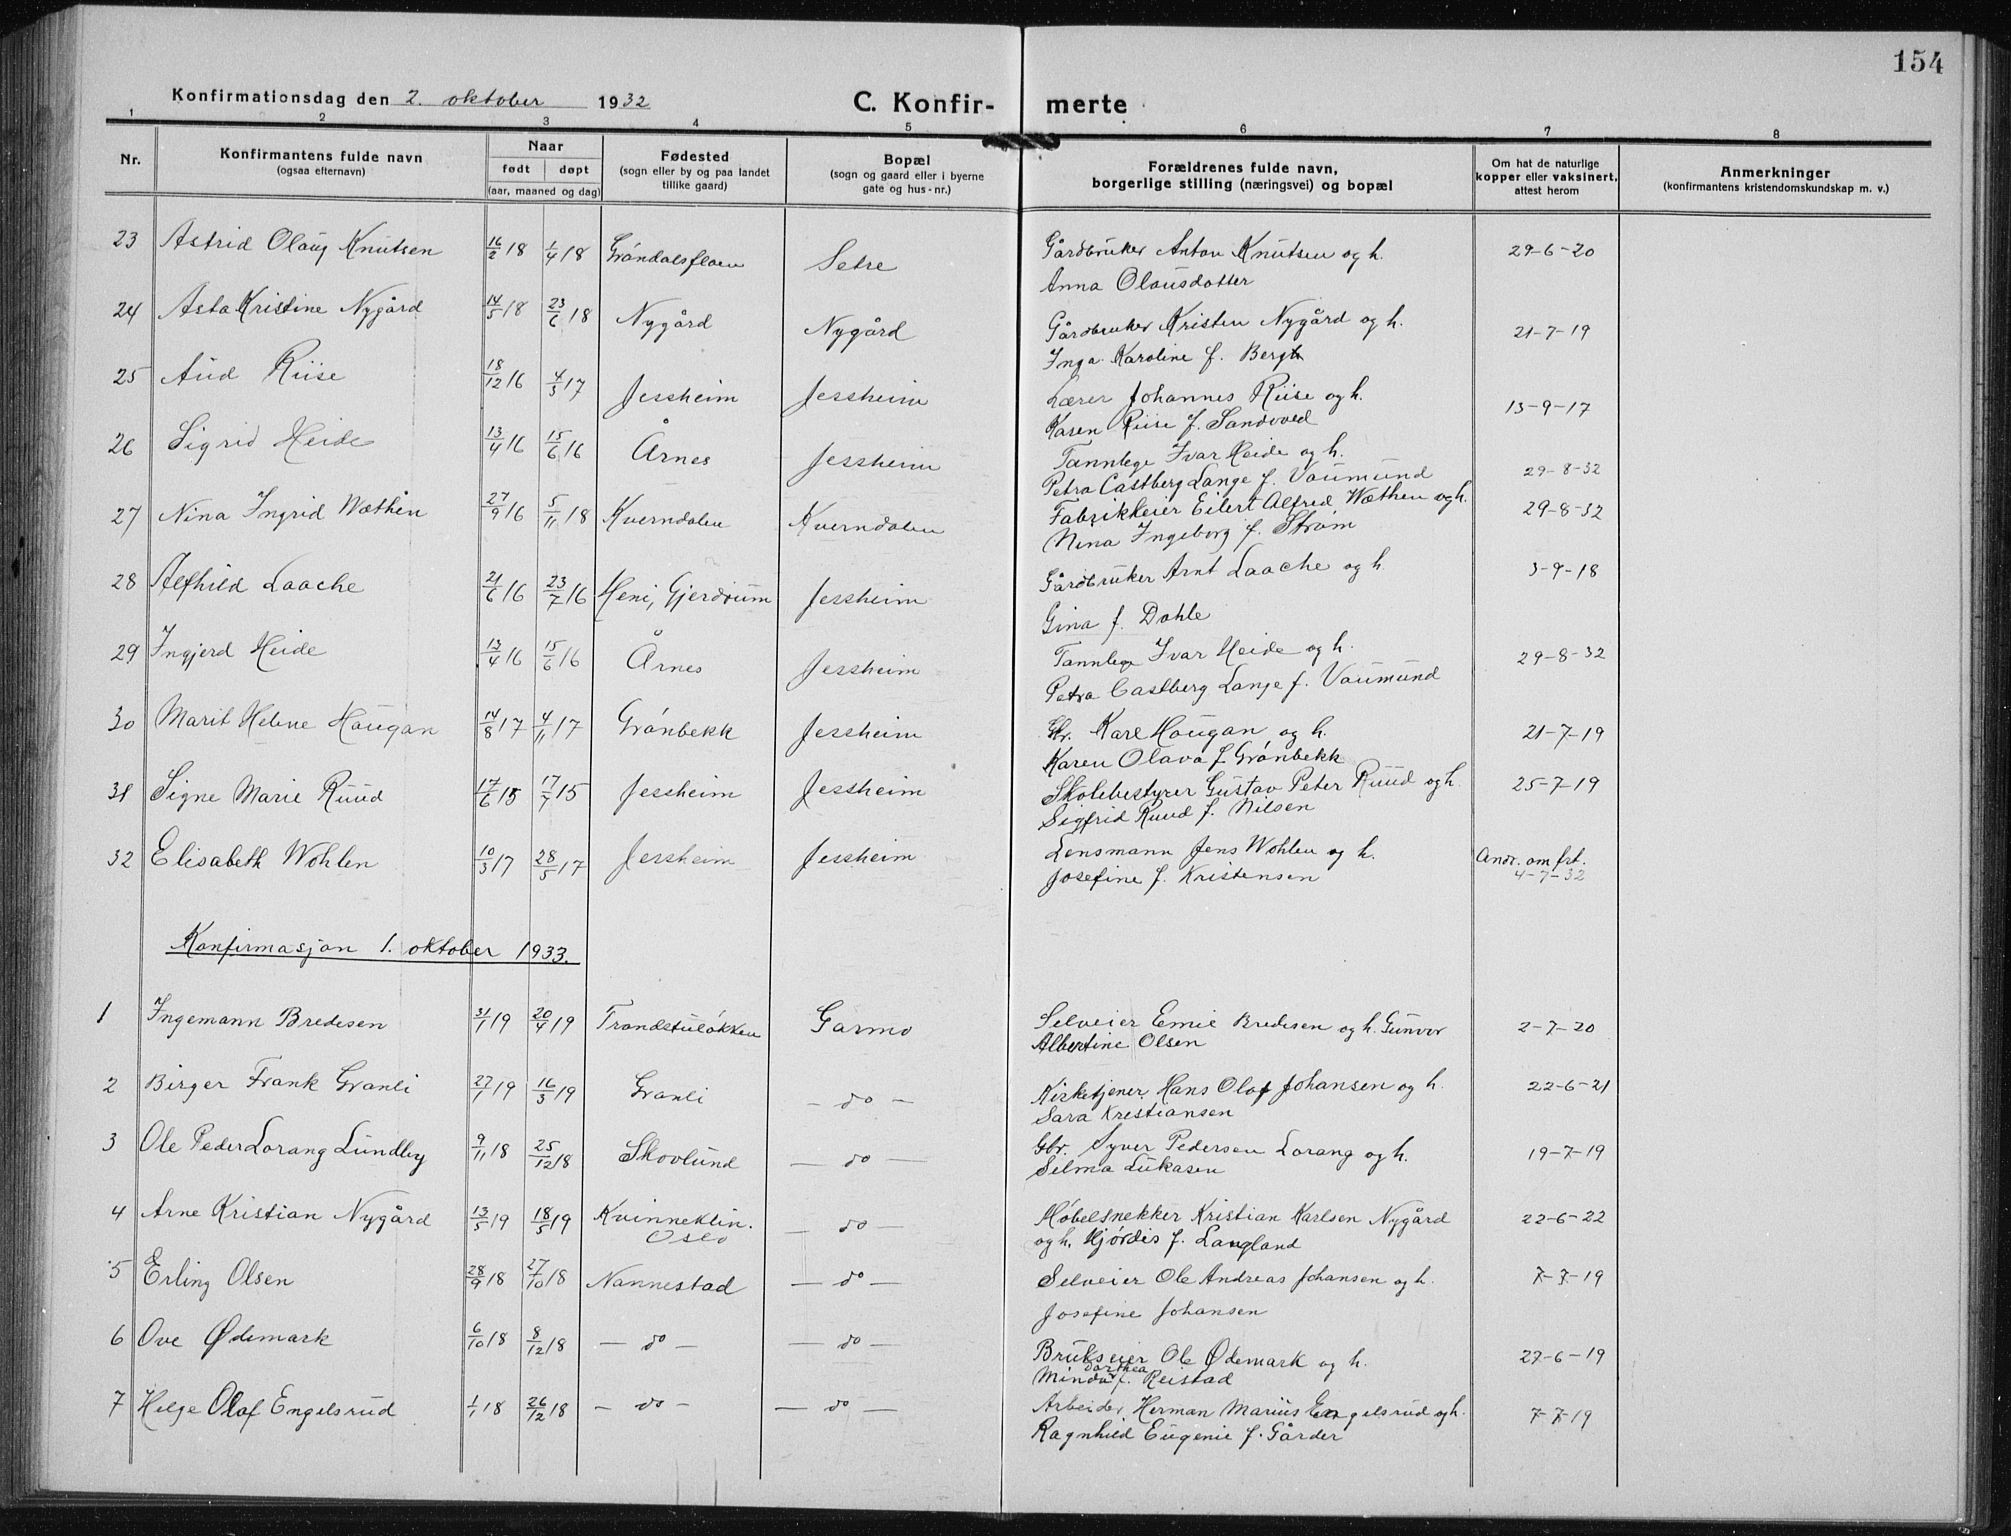 154
Konfirmationsdag den 2. oktober 1932 C. Konfir- merte
1 2 3 4 5 6 7 8
Nr. Konfirmantens fulde navn (ogsaa efternavn) Naar født døpt (aar, maaned og dag) Fødested (sogn eller by og paa landet tillike gaard) Bopæl (sogn og gaard eller i byerne gate og hus-nr.) Forældrenes fulde navn, borgerlige stilling (næringsvei) og bopæl Om hat de naturlige kopper eller vaksinert, attest herom Anmerkninger (konfirmantens kristendomskundskap m. v.)
23 Astrid Olaug Knutsen 16/2 18 1/4 18 Grøndalsfloen Setre Gårdbruker Anton Knutsen og h. 29-6-20
Anna Olausdotter
24 Asta Kristine Nygård 14/5 18 23/6 18 Nygård Nygård Gårdbruker Kristen Nygård og h. 21-7-19
Inga Karoline f. Bergh
25 Aud Riise 18/12 16 4/3 17 Jessheim Jessheim Lærer Johannes Riise og h. 13-9-17
Karen Riise f. Sandvold
26 Sigrid Heide 13/4 16 15/6 16 Årnes Jessheim Tannlege Ivar Heide og h. 29-8-32
Petra Castberg Lange f. Vaumund
27 Nina Ingrid Wæthen 27/9 16 5/11 18 Kverndalen Kverndalen Fabrikkeier Eilert Alfred Wæthen og h. 29-8-32
Nina Ingeborg f. Strøm
28 Alfhild Laache 21/6 16 23/7 16 Heni, Gjerdrum Jessheim Gårdbruker Arnt Laache og h. 3-9-18
Gina f. Dahle
29 Ingjerd Heide 13/4 16 15/6 16 Årnes Jessheim Tannlege Ivar Heide og h. 29-8-32
Petra Castberg Lange f. Vaumund
30 Marit Helene Haugan 14/8 17 4/11 17 Grønbekk Jessheim Gbr. Karl Haugan og h. 21-7-19
Karen Olava f. Grønbekk
31 Signe Marie Ruud 17/6 15 17/7 15 Jessheim Jessheim Skolebestyrer Gustav Peter Ruud og h. 25-7-19
Sigfrid Ruud f. Nilsen
32 Elisabeth Wohlen 10/3 17 28/5 17 Jessheim Jessheim Lensmann Jens Wohlen og h. Andr. om frt.
Josefine f. Kristensen 4-7-32
Konfirmasjon 1. oktober 1933.
1 Ingemann Bredesen 31/1 19 20/4 19 Trandstuløkken Garmo Selveier Emil Bredesen og h. Gunvor 2-7-20
Albertine Olsen
2 Birger Frank Granli 27/1 19 16/3 19 Granli — do — Kirketjener Hans Olaf Johansen og h. 22-6-21
Sara Kristiansen
3 Ole Peder Lorang Lundby 9/11 18 25/12 18 Skovlund — do — Gbr. Syver Pedersen Lorang og h. 19-7-19
Selma Lukasen
4 Arne Kristian Nygård 13/5 19 18/5 19 Kvinneklin. — do — Møbelsnekker Kristian Karlsen Nygård 22-6-22
Oslo og h. Hjørdis f. Langland
5 Erling Olsen 28/9 18 27/10 18 Nannestad — do — Selveier Ole Andreas Johansen og h. 7-7-19
Josefine Johansen
6 Ove Ødemark 6/10 18 8/12 18 — do — — do — Brukseier Ole Ødemark og h. 27-6-19
Minda Dorthea f. Reistad
7 Helge Olaf Engelsrud 1/1 18 26/12 18 — do — — do — Arbeider Herman Marius Engelsrud og h. 7-7-19
Ragnhild Eugenie f. Gårder